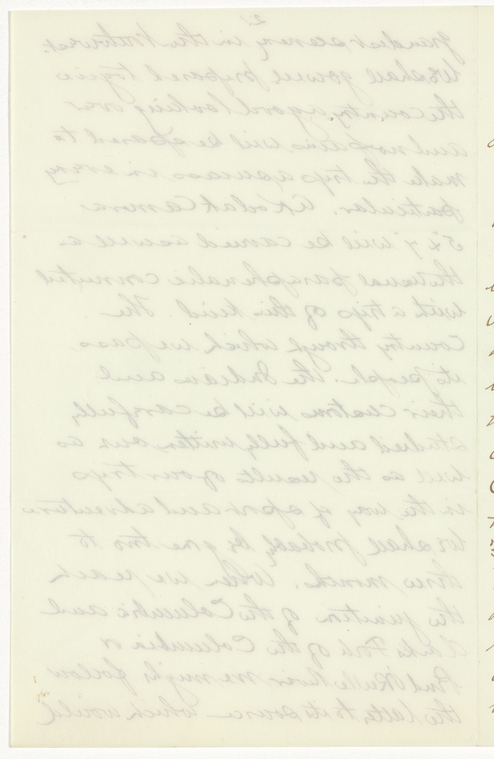 2
grandest scenery in the Northwest.
We shall go well prepared to give
the country a good looking over
and no pains will be spared to
make the trip a success in every
particular. A Kodak Camera
5 x 7 will be carried as well as
the usual paraphernalia connected
with a trip of this kind. The
Country through which we pass
its people. the Indians and
their customs will be carefully
studied and fully written our as
well as the results of our trip
in the way of sport and adventure
We shall probably be gone two to
three months. When we reach
the junction of the Columbia and
Clarks Fork of the Columbia or
Pend Oreille River we might follow
the latter to its source which would